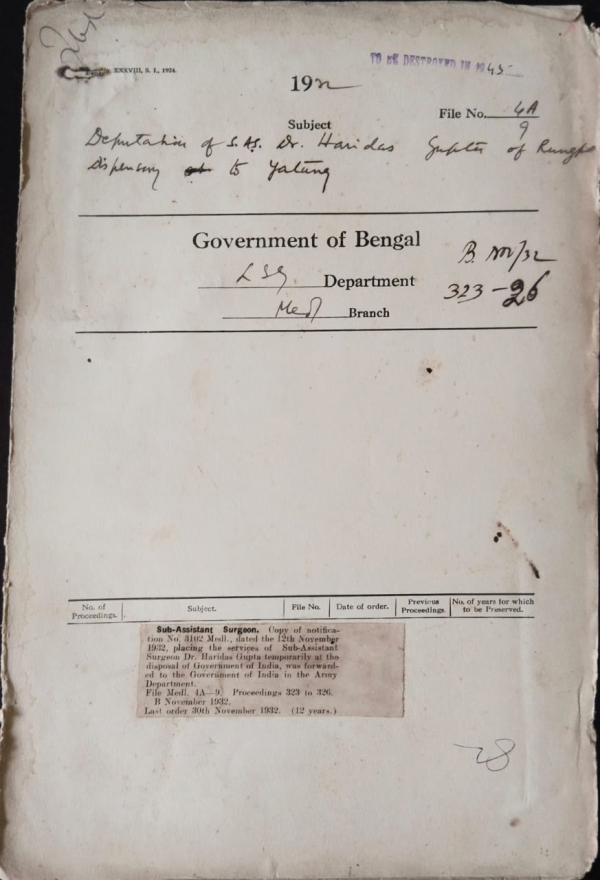 XXXVIII, S. I., 1924.
TO BE DESTROYED IN 1945
1932
File No. 4A/9
Subject
Deputation of S.A.S. Dr. Haridas Gupta of
Dispensary to Yatung
Government of Bengal
B. Nov/32
L S G. Department
323-26
Medl Branch
No. of Proceedings. Subject. File No. Date of order. Previous Proceedings. No. of years for which to be Preserved.
Sub-Assistant Surgeon. Copy of notifica-
tion No. 3102 Medl., dated the 12th November
1932, placing the services of Sub-Assistant
Surgeon Dr. Haridas Gupta temporarily at the
disposal of Government of India, was forward-
ed to the Government of India in the Army
Department.
File Medl. 4A—9. Proceedings 323 to 326.
B November 1932.
Last order 30th November 1932. (12 years.)
28